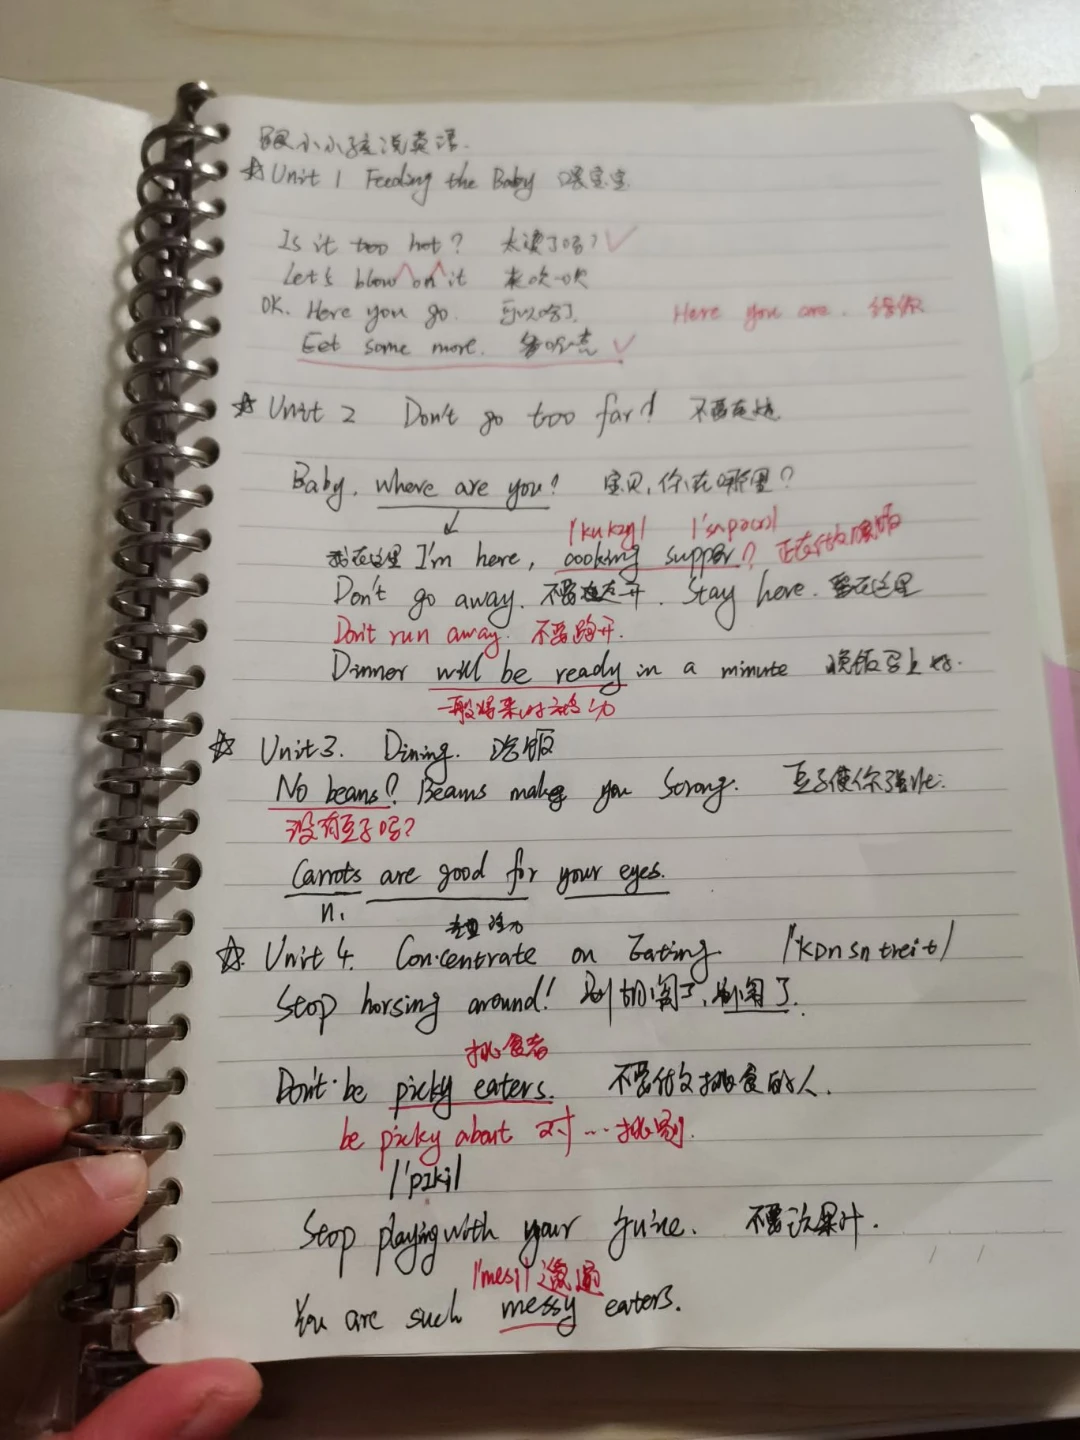 跟小小孩说英语.
☆ Unit 1 Feeding the Baby 喂宝宝
Is it too hot? 太烫了吗? ✓
Let's blow on it 来吹一吹
OK. Here you go. 可以吃了. Here you are. 给你
Eat some more. 多吃点 ✓
☆ Unit 2 Don't go too far! 不要走远
Baby, where are you? 宝贝,你在哪里?
↙ /'kukɪŋ/ /'sʌpə(r)/
我在这里 I'm here, cooking supper? 正在做晚饭
Don't go away. 不要走开. Stay here. 留在这里
Don't run away. 不要跑开.
Dinner will be ready in a minute 晚饭马上好.
一般将来时
☆ Unit 3. Dining. 吃饭
No beans? Beans makes you Strong. 豆子使你强壮.
没有豆子吗?
Carrots are good for your eyes.
n.
☆ Unit 4. Concentrate on Eating. /'kɒnsntreit/
Stop horsing around! 别胡闹了, 别闹了.
挑食者
Don't be picky eaters. 不要做挑食的人.
be picky about 对…挑剔.
/'pɪki/
Stop playing with your juice. 不要玩果汁.
/'mesi/ 邋遢
You are such messy eaters.